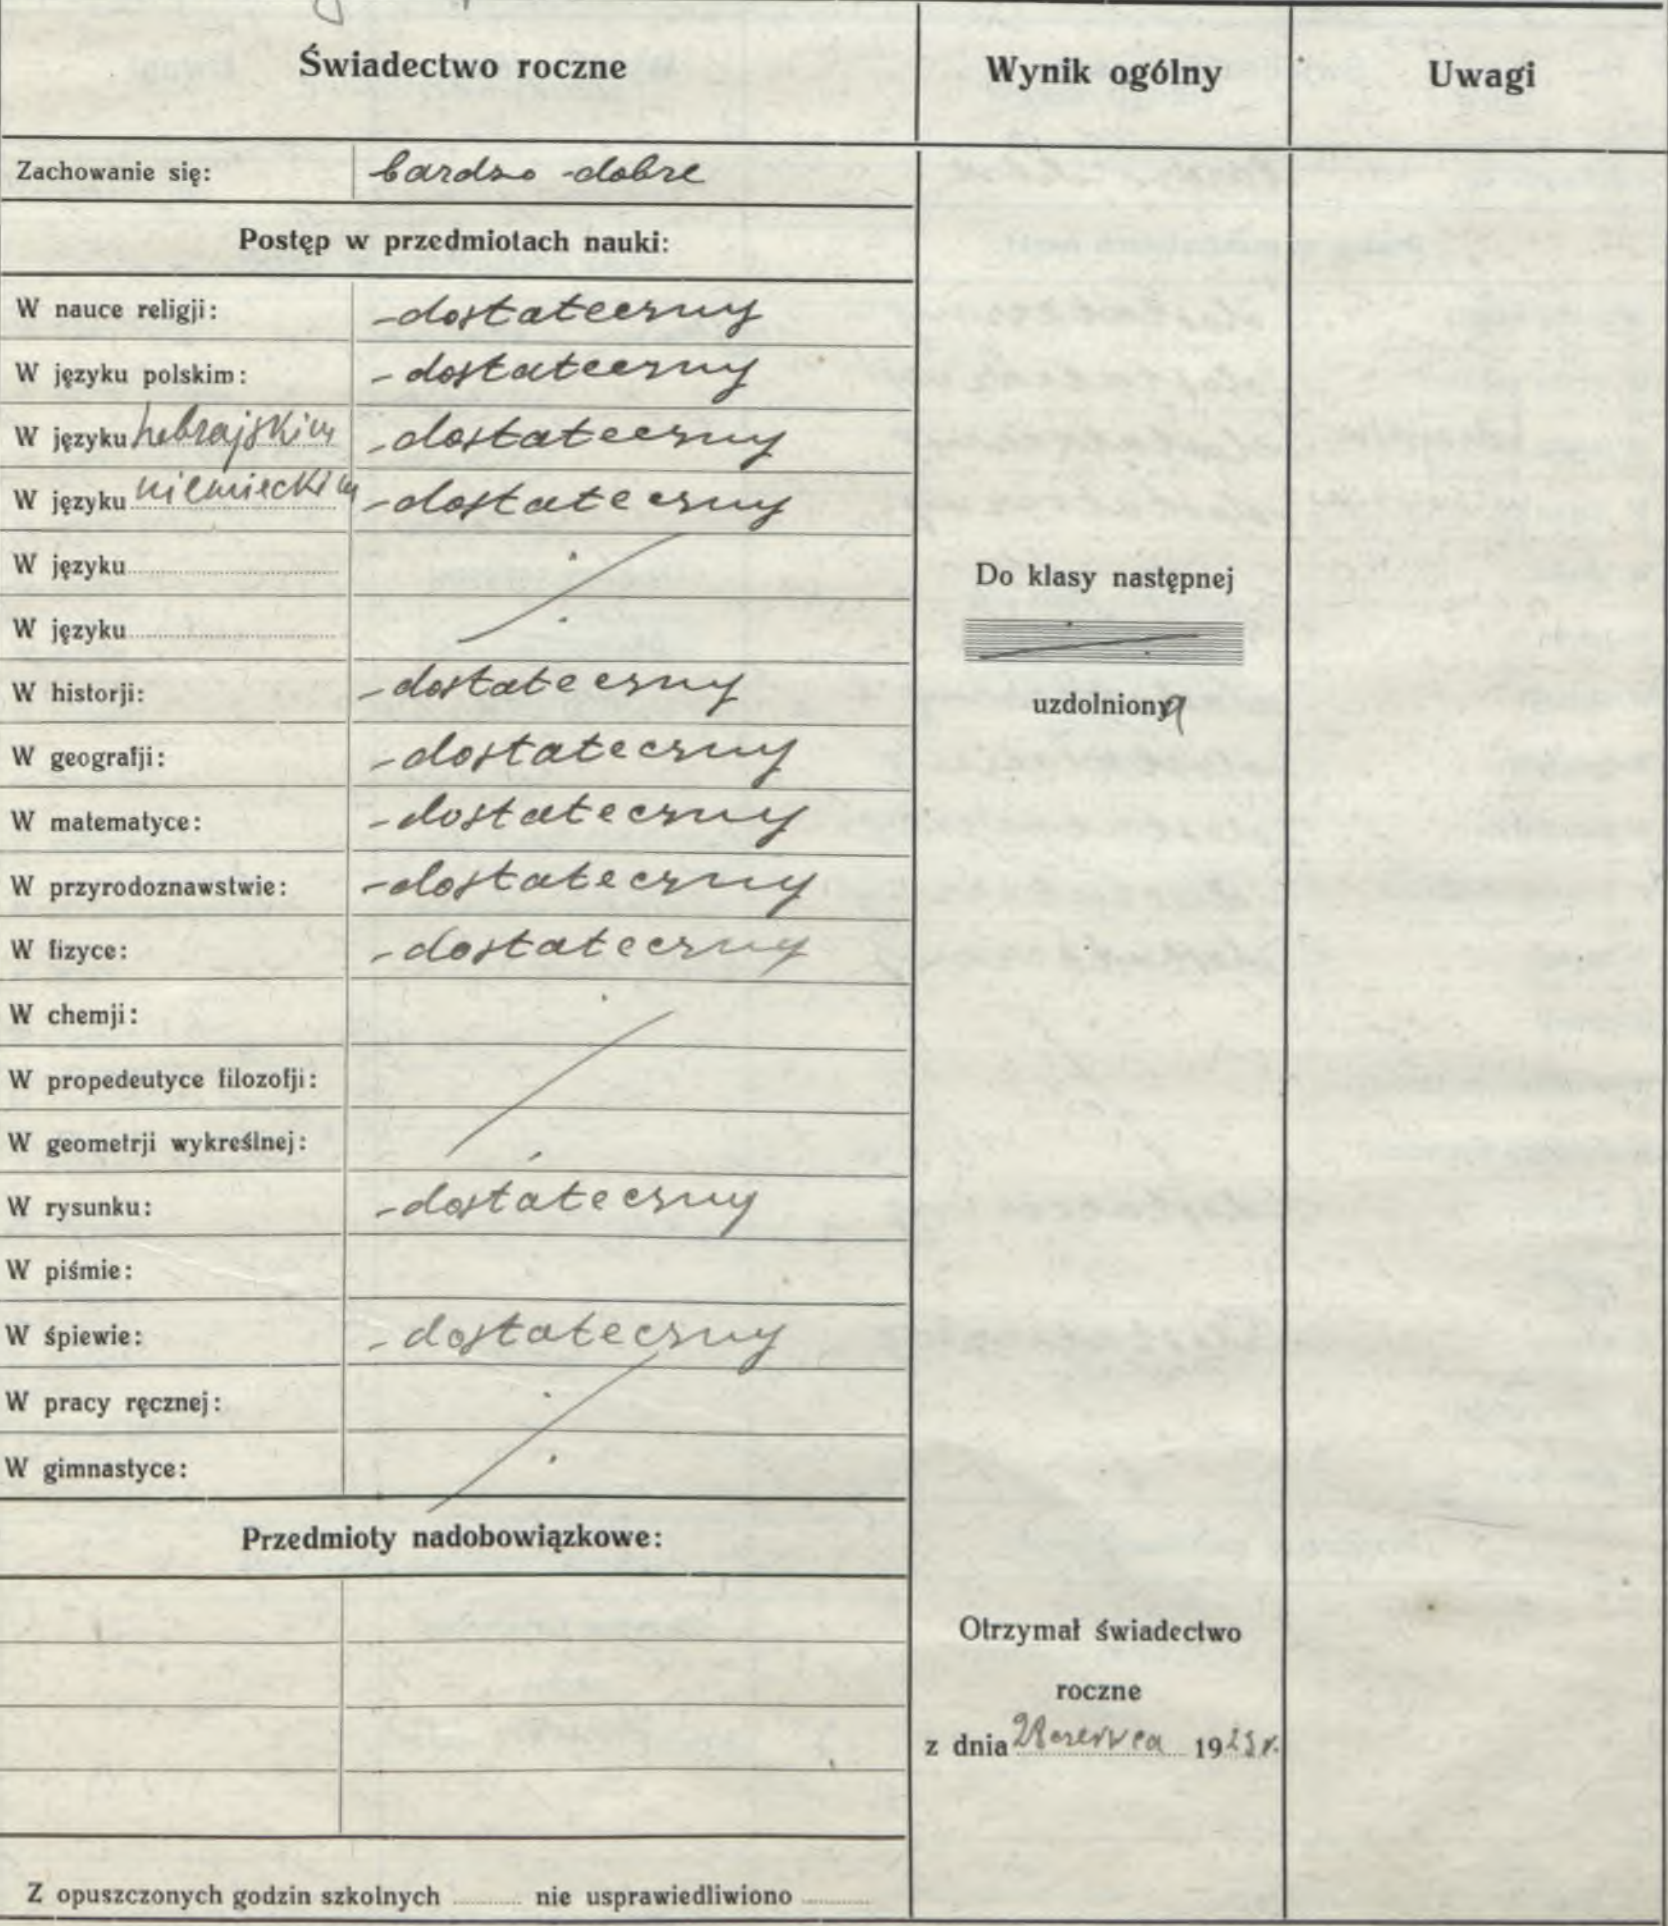 Świadectwo roczne
Wynik ogólny
Uwagi
Zachowanie się: bardzo dobre
Postęp w przedmiotach nauki:
W nauce religji: dostateczny
W języku polskim: dostateczny
W języku hebrajskim dostateczny
W języku niemieckim dostateczny
W języku
W języku
W historji: dostateczny
W geografji: dostateczny
W matematyce: dostateczny
W przyrodoznawstwie: dostateczny
W fizyce: dostateczny
W chemji:
W propedeutyce filozofji:
W geometrji wykreślnej:
W rysunku: dostateczny
W piśmie:
W śpiewie: dostateczny
W pracy ręcznej:
W gimnastyce:
Przedmioty nadobowiązkowe:
Z opuszczonych godzin szkolnych nie usprawiedliwiono
Do klasy następnej
uzdolniona
Otrzymał świadectwo
roczne
z dnia 28 czerwca 19 r.